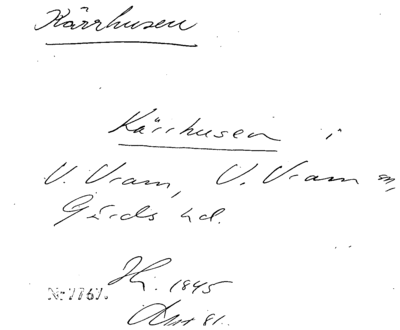 Kärrhusen
Kärrhusen i
V. Vram, V. Vram sn,
Gärds hd.
1845
Nr 7767.
81.